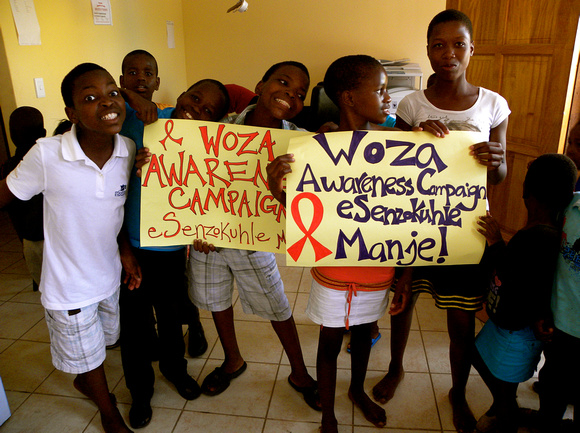 WOZA
AWAREN
CAMPAIGN
eSenzokuhle
Woza
Awareness Campaign
eSenzokuhle
Manje!